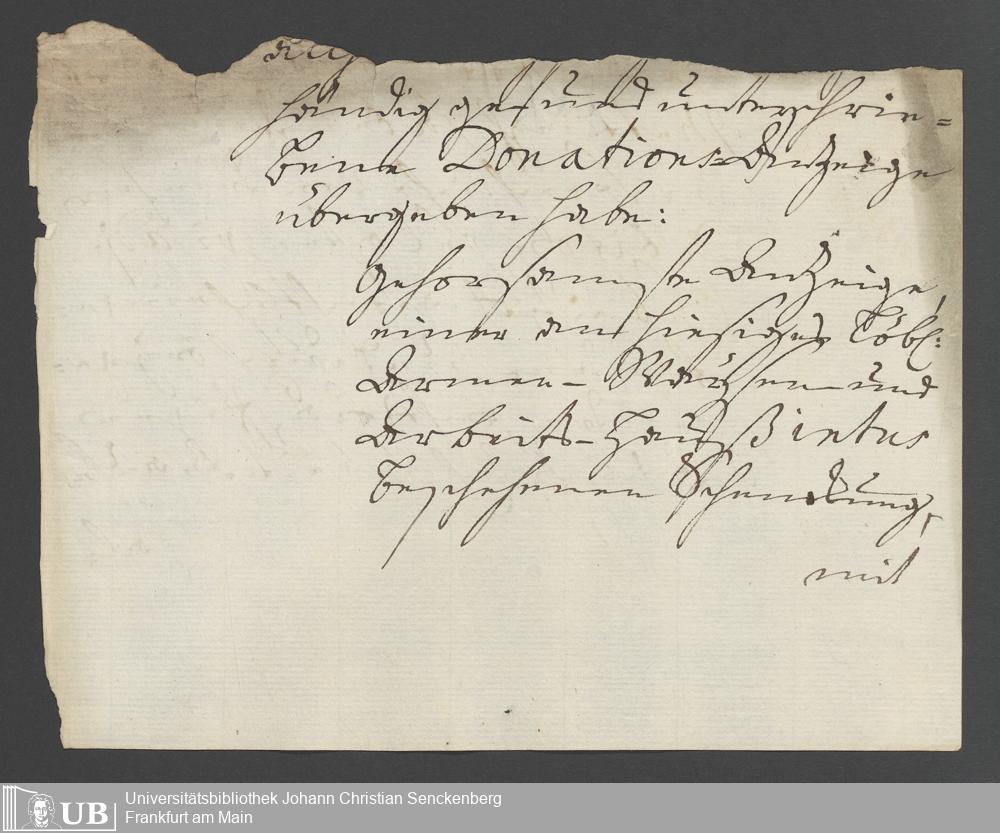 händig ges: und unterschrie=
bene Donations=Anzeige
übergeben habe:
Gehorsamste Anzeige,
einer an hiesiges löbl:
Armen- Waÿsen- und
Arbeits-Hauß intus
beschehenen Schenckung,
mit
UB
Universitätsbibliothek Johann Christian Senckenberg
Frankfurt am Main